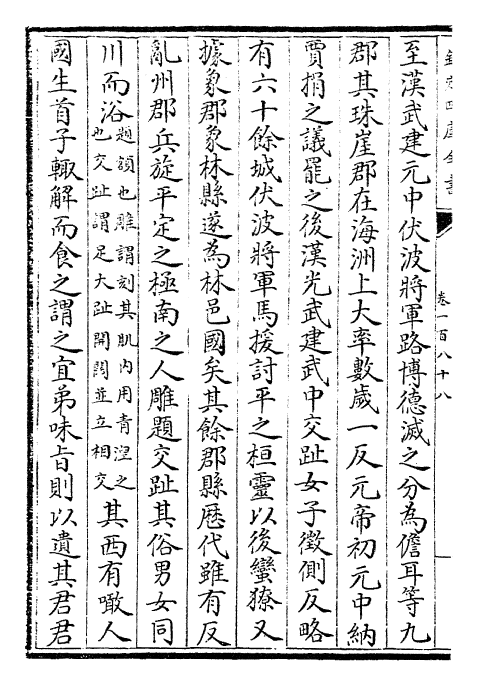 至漢武建元中伏波將軍路博德滅之分為儋耳等九
郡其珠崖郡在海洲上大率數歲一反元帝初元中納
賈捐之議罷之後漢光武建武中交趾女子徵側反略
有六十餘城伏波將軍馬援討平之桓靈以後蠻獠又
據象郡象林縣遂為林邑國矣其餘郡縣歷代雖有反
亂州郡兵旋平定之極南之人雕題交趾其俗男女同
川而浴題額也雕謂刻其肌肉用青涅之
也交趾謂足大趾開闊並立相交其西有噉人
國生首子輒解而食之謂之宜弟味旨則以遺其君君
欽定四庫全書
卷一百八十八